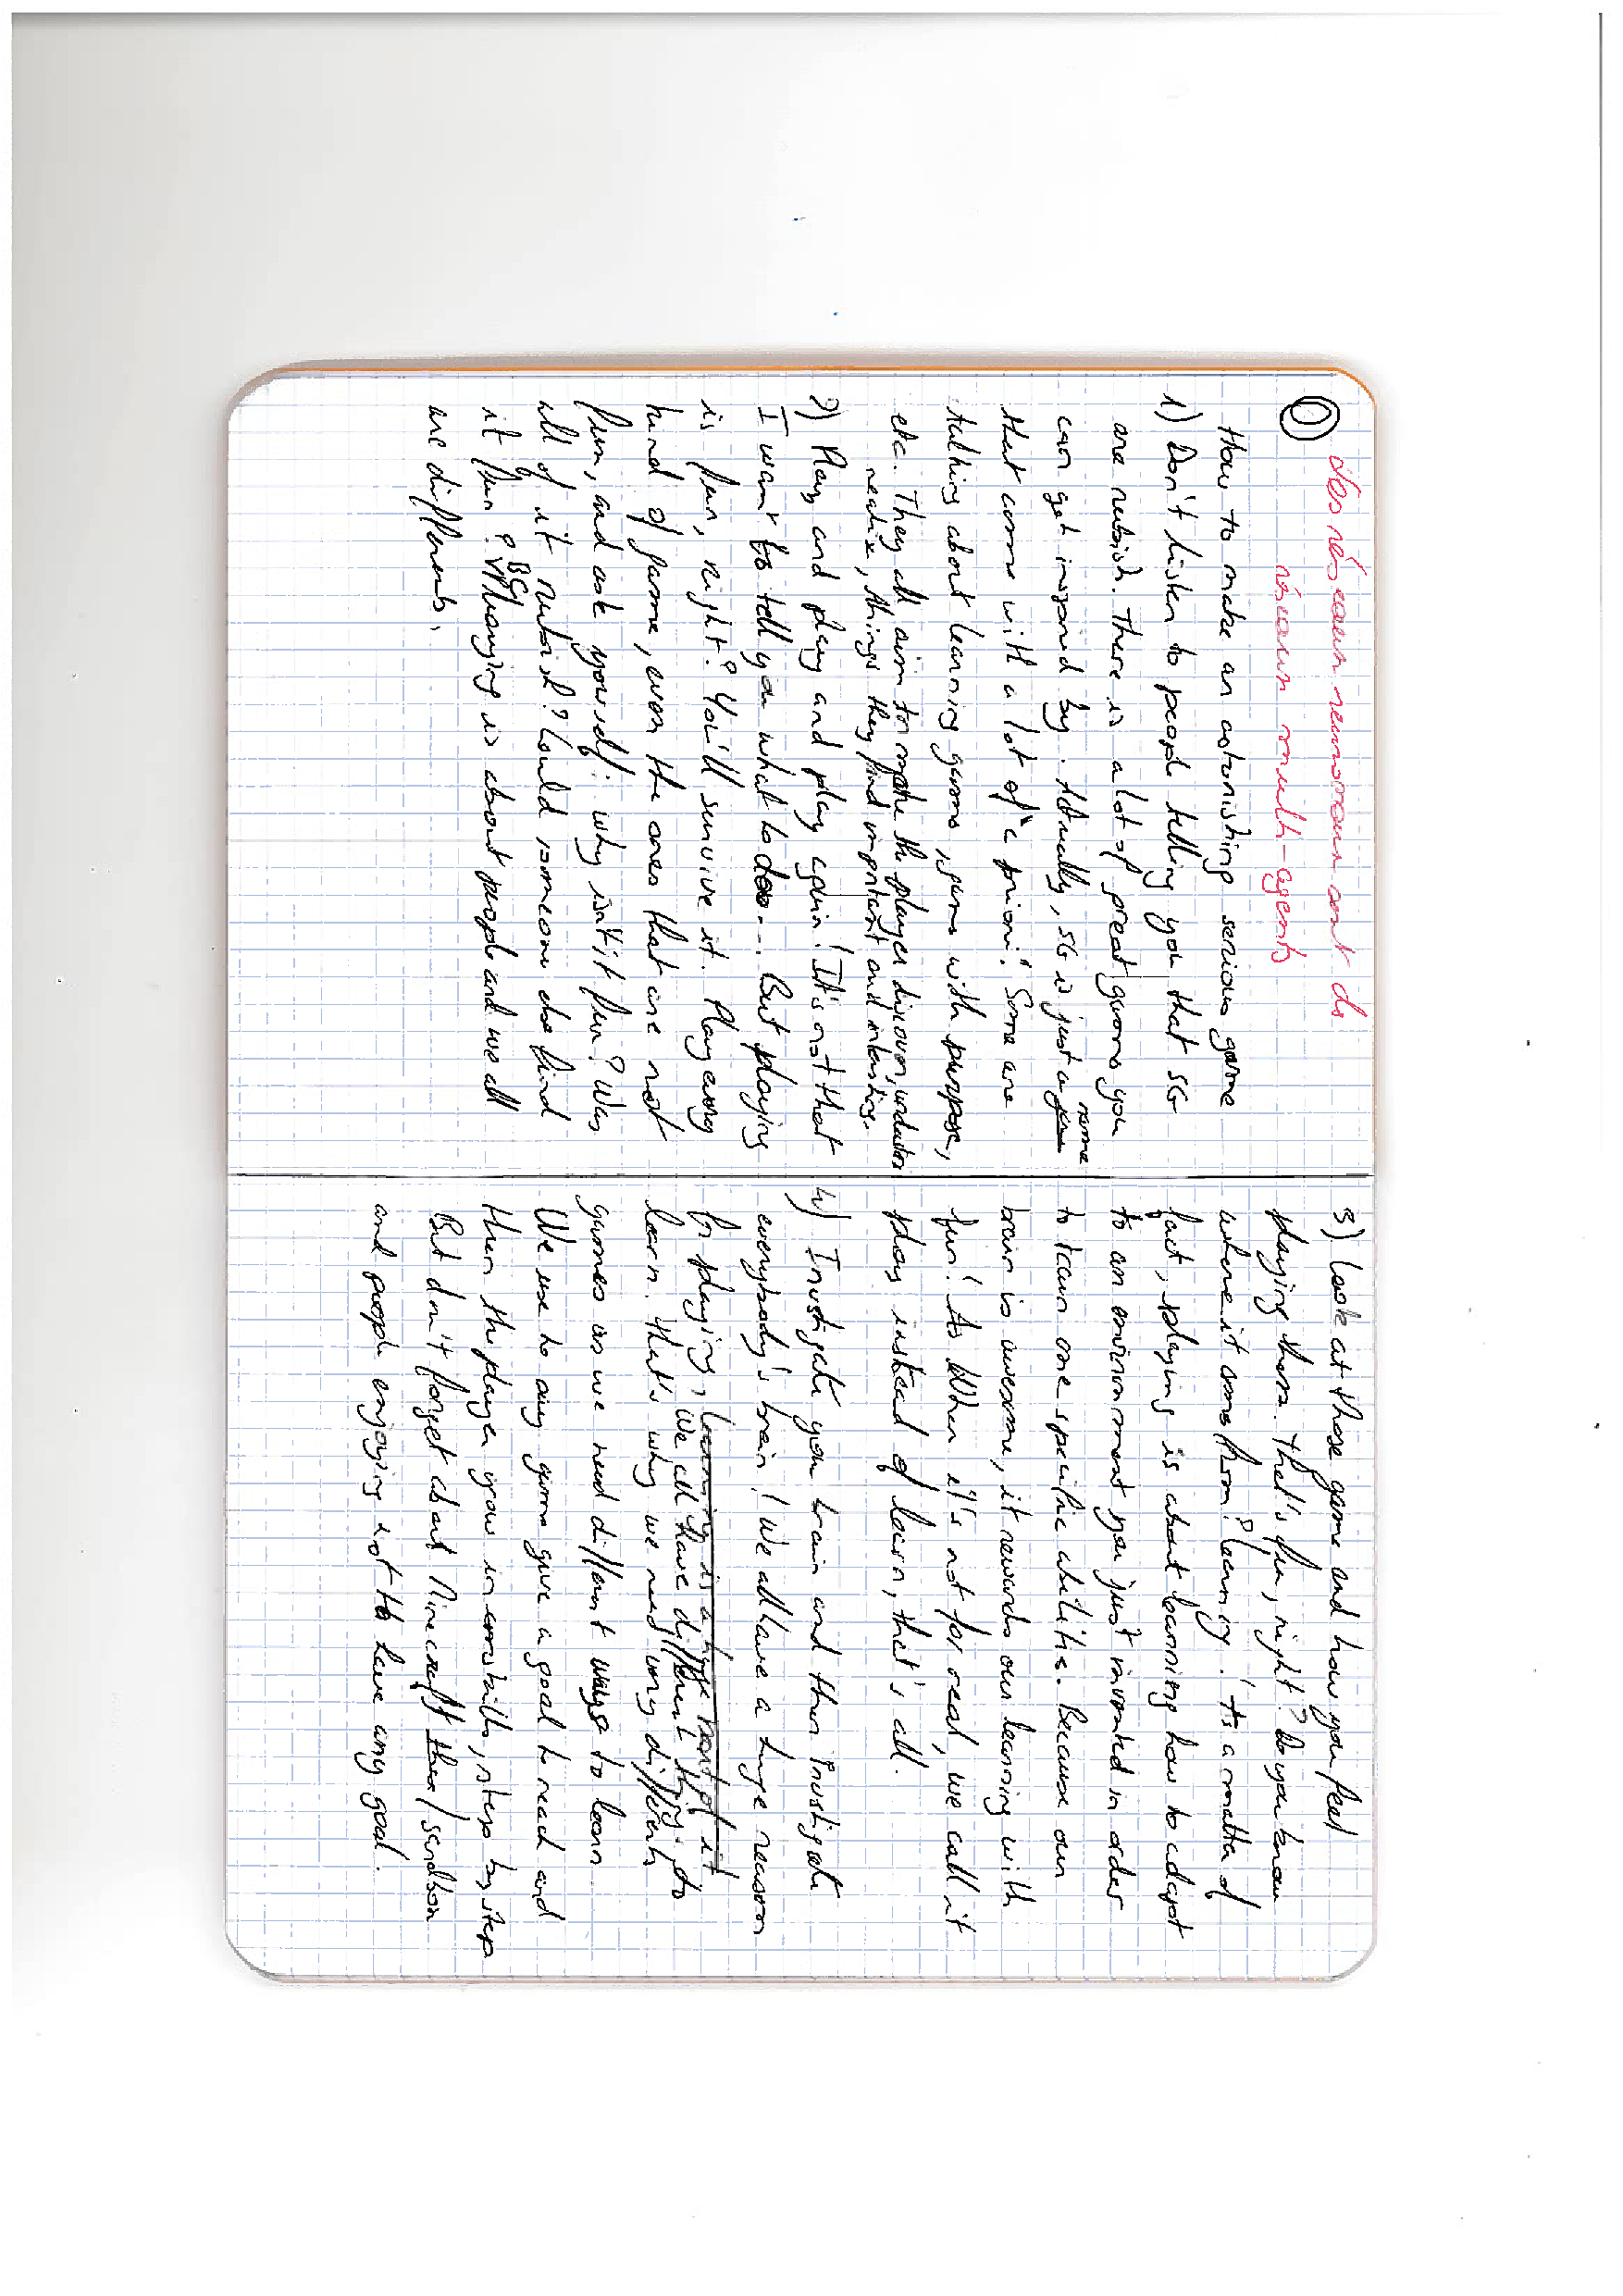 des réseaux neuronaux sont des
réseaux multi-agents
①
How to make an astonishing serious game
1) Don't listen to people telling you that SG
are rubish. There is a lot of great games you
can get inspired by. Actually, SG is just a name
that come with a lot of "a priori". Some are
talking about learning games, games with purpose,
etc. They all aim to make the player discover, understand
realize, things they find important and interesting.
2) Play and play and play again! It's not that
I want to tell you what to do... But playing
is fun, right? You'll survive it. Play every
kind of game, even the ones that are not
fun, and ask yourself: why isn't it fun? Was
all of it rubish? Could someone else find
it fun? VG Playing is about people and we all
are differents.
3) Look at those game and how you feel
playing them. That's fun, right? Do you know
where it comes from? Learning! It's a matter of
fact, playing is about learning how to adapt
to an environment you just invented in order
to learn one specific abilities. Because our
brain is awesome, it rewards our learning with
fun! When it's not for real, we call it
play instead of learn, that's all.
4) Investigate your brain and then investigate
everybody's brain! We all have a huge reason
for playing, learning is a huge part of it
we all have different things to
learn. That's why we need very differents
games as we need different ways to learn.
We use to say game give a goal to reach and
then the player grow in , step by step
But don't forget about Minecraft / sandbox
and people enjoying not to have any goal.